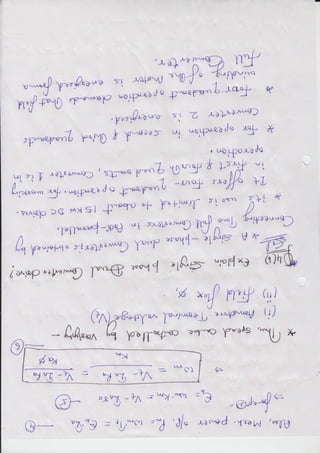 Also, Mech. power o/p. Pm = ωm Te = Eb Ia — 4
⇒ from eqn ②
Eb = ωm Km = Vt - Ia Ra — 5
⇒ ωm = (Vt - Ia Ra) / Km = (Vt - Ia Ra) / (Ka Ø) — 6
* Thus, speed can be controlled by varying —
(i) Armature Terminal voltage (Vt)
(ii) field flux Ø.
Q4(b) Explain Single phase Dual Converter drive?
* A Single-phase dual Converter is obtained by
Connecting Two full Converters in Anti-parallel.
* its use is limited to about 15 Kw DC drive.
It offers four-quadrant operation. for working
in first & fourth Quadrants, Converter 1 is in
operation.
* for operation in second & third quadrants
Converter 2 is energised.
* four quadrant operation demands that field
winding of the Motor is energised from a
full Converter.